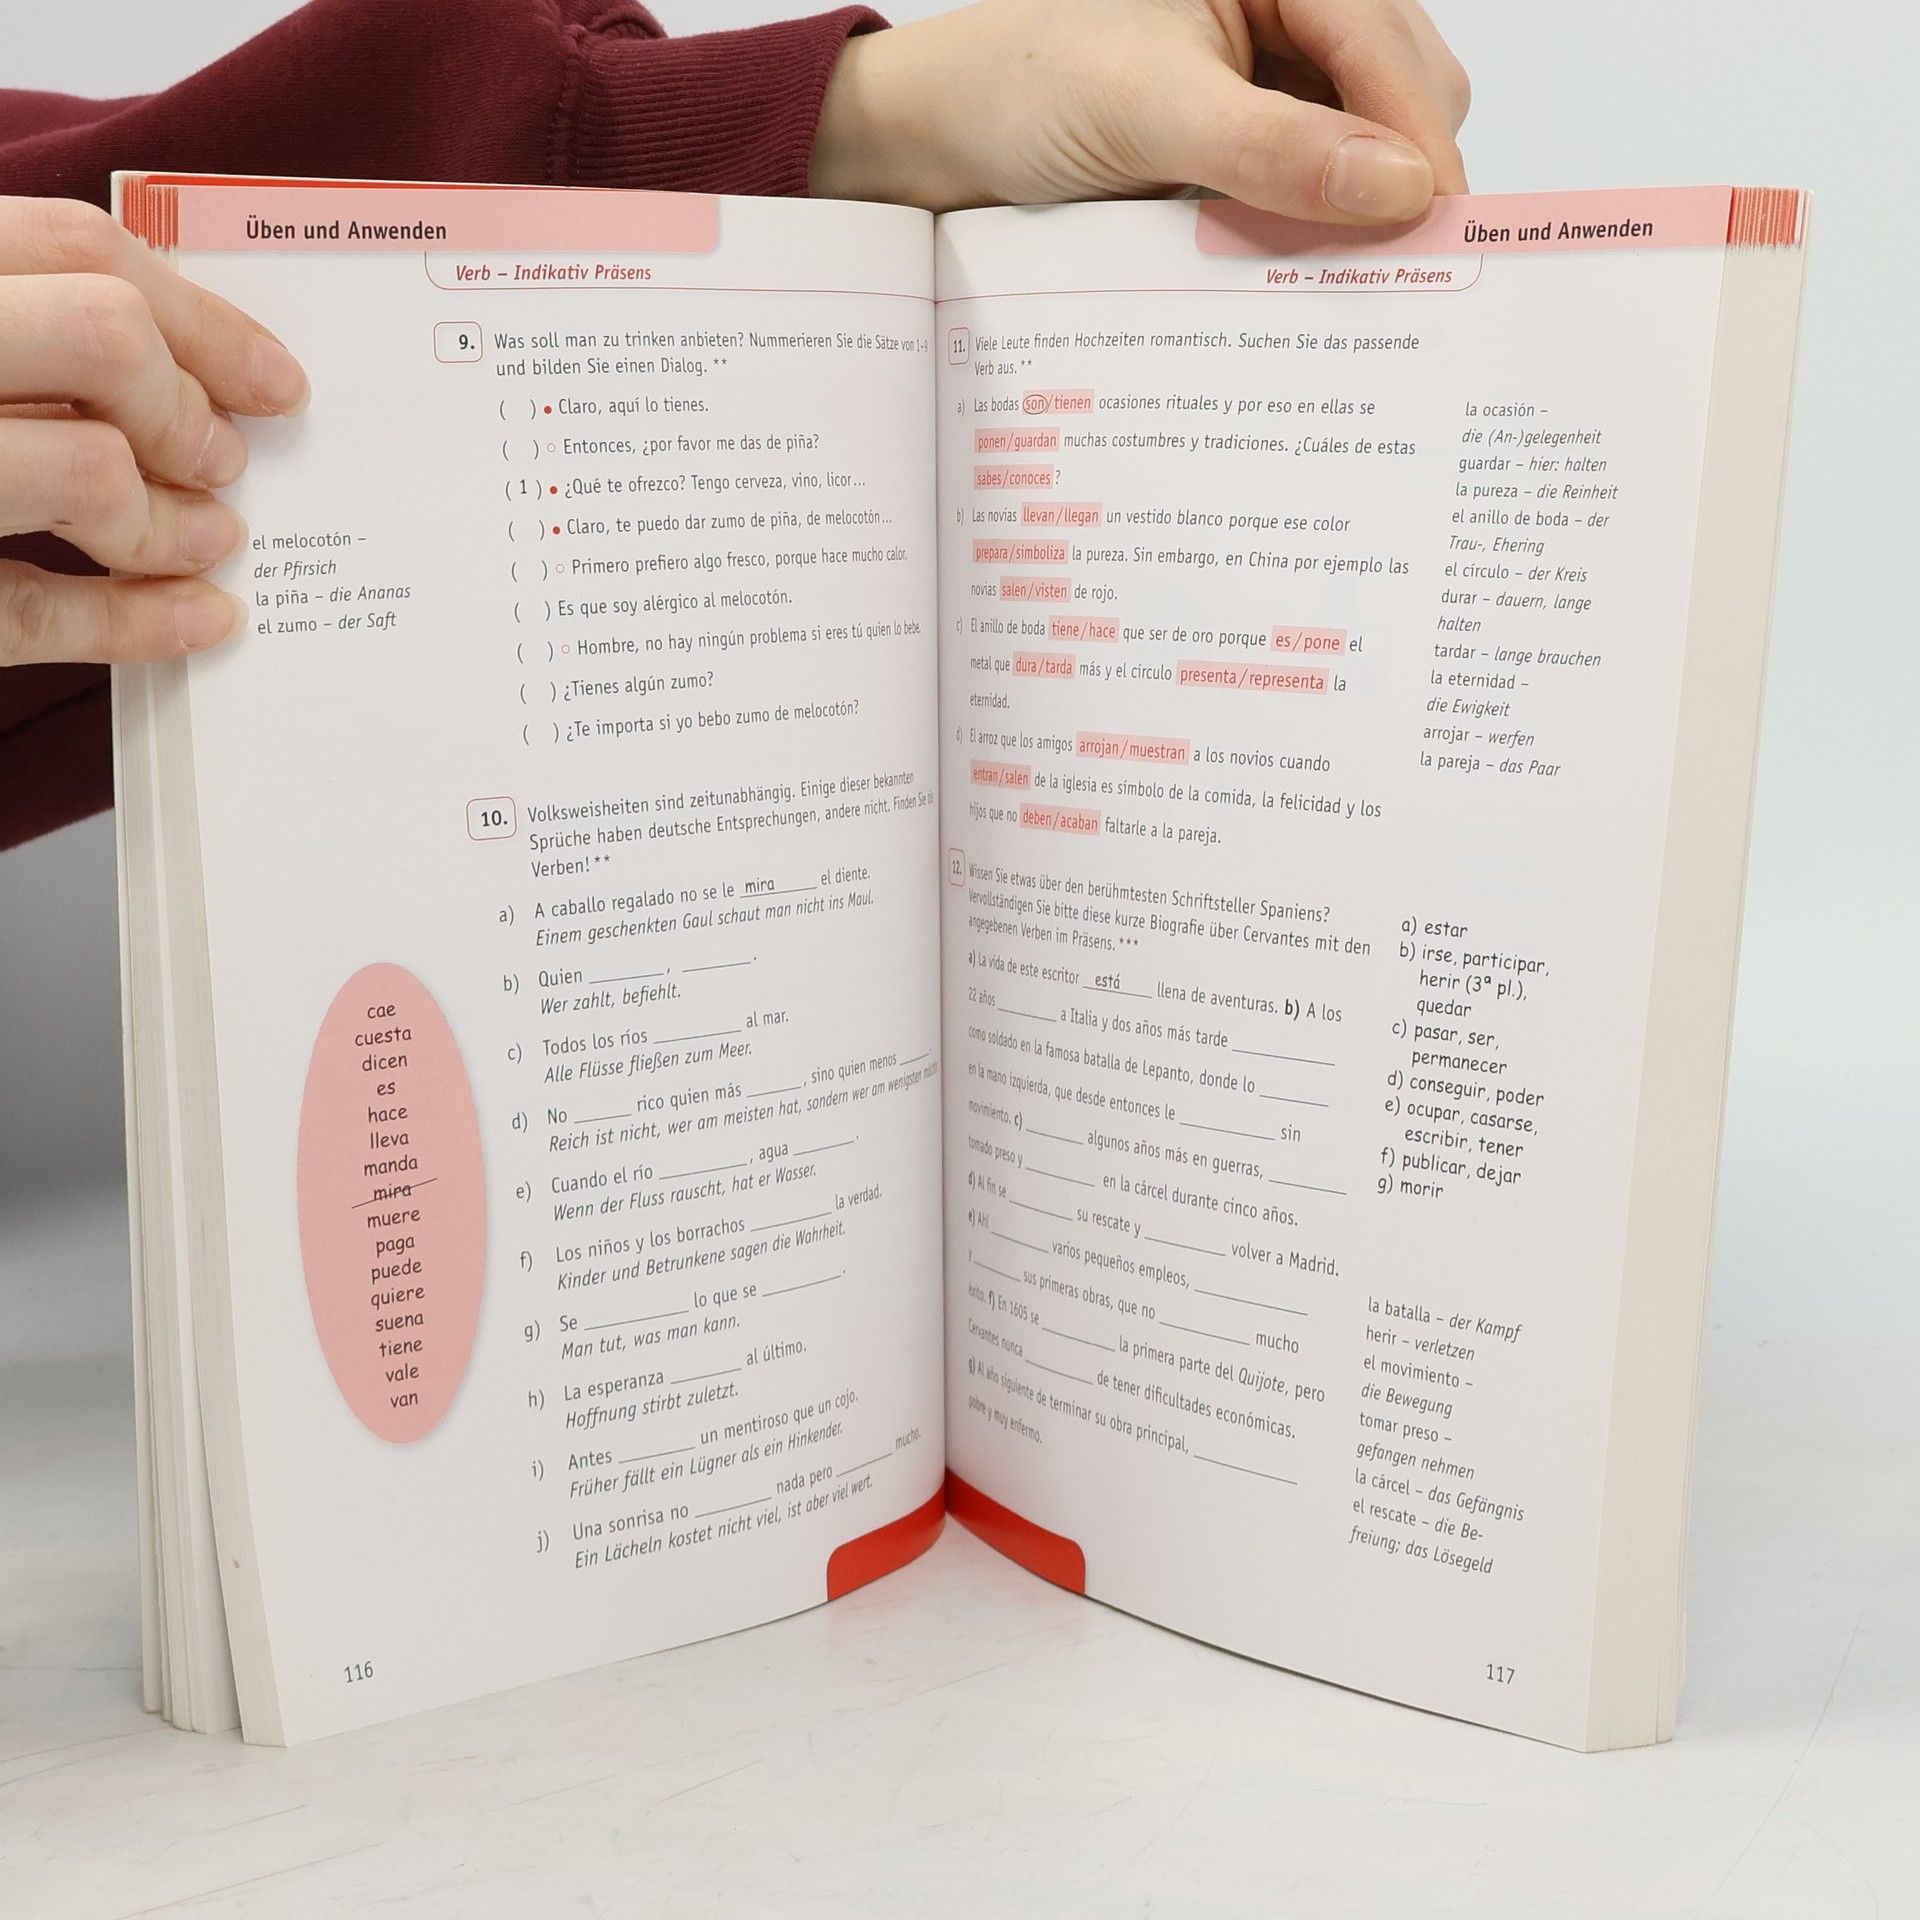 Üben und Anwenden
Verb – Indikativ Präsens
9. Was soll man zu trinken anbieten? Nummerieren Sie die Sätze von 1-9
und bilden Sie einen Dialog. **
( ) • Claro, aquí lo tienes.
( ) ○ Entonces, ¿por favor me das de piña?
( 1 ) • ¿Qué te ofrezco? Tengo cerveza, vino, licor...
( ) • Claro, te puedo dar zumo de piña, de melocotón...
( ) ○ Primero prefiero algo fresco, porque hace mucho calor.
( ) Es que soy alérgico al melocotón.
( ) ○ Hombre, no hay ningún problema si eres tú quien lo bebe.
( ) ¿Tienes algún zumo?
( ) ¿Te importa si yo bebo zumo de melocotón?
el melocotón –
der Pfirsich
la piña – die Ananas
el zumo – der Saft
10. Volksweisheiten sind zeitunabhängig. Einige dieser bekannten
Sprüche haben deutsche Entsprechungen, andere nicht. Finden Sie die
Verben! **
a) A caballo regalado no se le mira el diente.
Einem geschenkten Gaul schaut man nicht ins Maul.
b) Quien ________, ________.
Wer zahlt, befiehlt.
c) Todos los ríos ________ al mar.
Alle Flüsse fließen zum Meer.
d) No ______ rico quien más ______, sino quien menos ____.
Reich ist nicht, wer am meisten hat, sondern wer am wenigsten möchte.
e) Cuando el río ________, agua ______.
Wenn der Fluss rauscht, hat er Wasser.
f) Los niños y los borrachos ________ la verdad.
Kinder und Betrunkene sagen die Wahrheit.
g) Se ________ lo que se ________.
Man tut, was man kann.
h) La esperanza ________ al último.
Hoffnung stirbt zuletzt.
i) Antes ________ un mentiroso que un cojo.
Früher fällt ein Lügner als ein Hinkender.
j) Una sonrisa no ________ nada pero ______ mucho.
Ein Lächeln kostet nicht viel, ist aber viel wert.
cae
cuesta
dicen
es
hace
lleva
manda
mira
muere
paga
puede
quiere
suena
tiene
vale
van
116
Üben und Anwenden
Verb – Indikativ Präsens
11. Viele Leute finden Hochzeiten romantisch. Suchen Sie das passende
Verb aus. **
a) Las bodas son/tienen ocasiones rituales y por eso en ellas se
ponen/guardan muchas costumbres y tradiciones. ¿Cuáles de estas
sabes/conoces?
b) Las novias llevan/llegan un vestido blanco porque ese color
prepara/simboliza la pureza. Sin embargo, en China por ejemplo las
novias salen/visten de rojo.
c) El anillo de boda tiene/hace que ser de oro porque es/pone el
metal que dura/tarda más y el círculo presenta/representa la
eternidad.
d) El arroz que los amigos arrojan/muestran a los novios cuando
entran/salen de la iglesia es símbolo de la comida, la felicidad y los
hijos que no deben/acaban faltarle a la pareja.
la ocasión –
die (An-)gelegenheit
guardar – hier: halten
la pureza – die Reinheit
el anillo de boda – der
Trau-, Ehering
el círculo – der Kreis
durar – dauern, lange
halten
tardar – lange brauchen
la eternidad –
die Ewigkeit
arrojar – werfen
la pareja – das Paar
12. Wissen Sie etwas über den berühmtesten Schriftsteller Spaniens?
Vervollständigen Sie bitte diese kurze Biografie über Cervantes mit den
angegebenen Verben im Präsens. ***
a) La vida de este escritor está llena de aventuras. b) A los
22 años ________ a Italia y dos años más tarde ________
como soldado en la famosa batalla de Lepanto, donde lo ________
en la mano izquierda, que desde entonces le ________ sin
movimiento. c) ________ algunos años más en guerras, ________
tomado preso y ________ en la cárcel durante cinco años.
d) Al fin se ________ su rescate y ________ volver a Madrid.
e) Ahí ________ varios pequeños empleos, ________
y ________ sus primeras obras, que no ________ mucho
éxito. f) En 1605 se ________ la primera parte del Quijote, pero
Cervantes nunca ________ de tener dificultades económicas.
g) Al año siguiente de terminar su obra principal, ________
pobre y muy enfermo.
a) estar
b) irse, participar,
herir (3ª pl.),
quedar
c) pasar, ser,
permanecer
d) conseguir, poder
e) ocupar, casarse,
escribir, tener
f) publicar, dejar
g) morir
la batalla – der Kampf
herir – verletzen
el movimiento –
die Bewegung
tomar preso –
gefangen nehmen
la cárcel – das Gefängnis
el rescate – die Be-
freiung; das Lösegeld
117